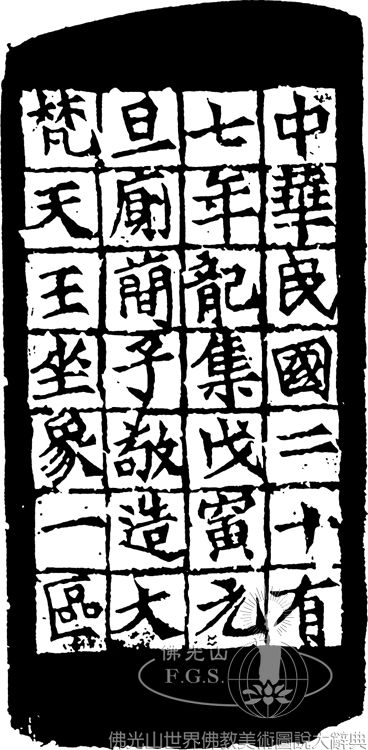 中華民國二十有
七年龍集戊寅元
旦廁簡子敬造大
梵天王坐象一區
佛光山
F.G.S.
佛光山世界佛教美術圖說大辭典